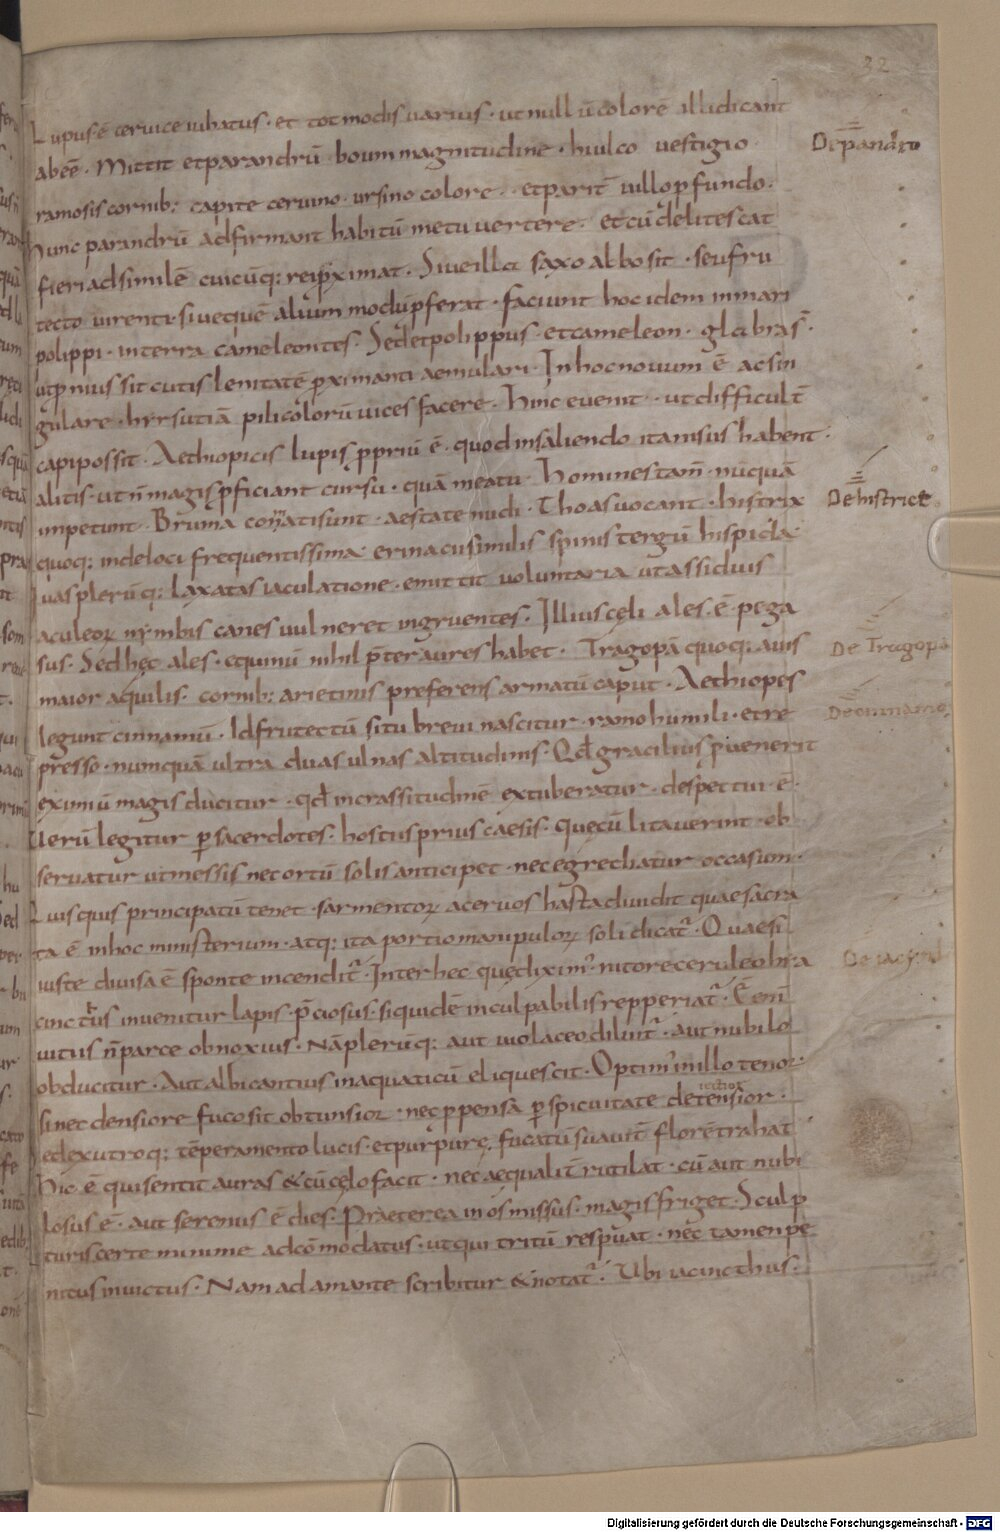 32
Lupus ē cervice iubatus · et tot modis uarius · ut null ū colorē illi dicant
abeē · Mittit et parandrū · boum magnitudine · hiulco vestigio ·
De pandro
ramosis cornib; capite cervino · ursino colore · et parit̄ uillo ꝓfundo ·
hunc parandrū adfirmant habitū metu vertere · et cū delitescat
fieri adsimilē cuicūq; rei ꝓximat · Siue illa saxo albo sit · seu fru
tecto virenti · siue quē alium modū p̄ferat · faciunt hoc idem in mari
polippi · in terra cameleontes · Sed et polippus · et cameleon · glabras̄ ·
ut ꝓnius sit cutis lenitatē ꝓximanti aemulari · In hoc novum ē ac sin
gulare · hyrsutiā pili colorū vices facere · Hinc evenit · ut difficult̄
capi possit · Aethiopicis lupis ꝓpriū ē · quod in saliendo ita nisus habent ·
alitis · ut n̄ magis ꝓficiant cursu · quā meatu · Homines tam̄ · nūquā
De histrice
impetunt · Bruma com̄ati sunt · aestate nudi · Thoas vocant · histrix
quoq; inde loci frequentissima erinacii similis spinis tergū hispida
quas plerūq; laxatas iaculatione · emittit voluntaria ut assiduis
aculeoꝝ nymbis canes vulneret ingruentes · Illius cęli ales · ē · pega
sus · Sed hęc ales · equinū nihil p̄ter aures habet · Tragopā quoq; auis
De Tragopa
maior aquilis · cornib; arietinis preferens armatū caput · Aethiopes
legunt cinnamū · Id frutectū situ brevi nascitur · ramo humili · et re
De cinnamo
presso · numquā ultra duas ulnas altitudinis · Qđ gracilius ꝓvenerit
eximiū magis ducitur · qđ in crassitudinē extuberatur · despectui · ē ·
Uerū legitur ꝑ sacerdotes · hostiis prius caesis · que cū litaverint · ob
servatur ut messis nec ortū solis anticipet · nec egrediatur occasum ·
Quisquis principatū tenet · sarmentoꝝ acervos hasta diuidit quae sacra
ta ē in hoc ministerium · atq; ita portio manipuloꝝ soli dicat᷑ · Quae si
iuste divisa ē sponte incendit᷑ · Inter hec quę dixim᷒ nitore ceruleo hia
cinctus invenitur lapis · p̄ciosus · siquidē inculpabilis repperiat᷑ · Ē eni
vitiis n̄ parce obnoxius · Nā plerūq; aut violaceo diluit᷑ · aut nubilo
obducitur · Aut albicantius in aquaticū eliquescit · Optim᷒ in illo tenor
si nec densiore fuco sit obtunsior · nec ꝓpensa ꝑspicuitate detensior ·
sed ex utroq; tēperamento lucis · et purpurę fucatū suavit̄ florē trahat
hic ē qui sentit auras & cū cęlo facit · nec aequalit̄ rutilat · cū aut nubi
losus ē · aut serenus ē dies · Praeterea in os missus · magis friget · Sculp
turis certe minime adcōmodatus · ut qui tritū respuat · nec tamen pe
nitus invictus · Nam adamante scribitur & notat᷑ · Ubi iacincthus ·
Digitalisierung gefördert durch die Deutsche Forschungsgemeinschaft - DFG